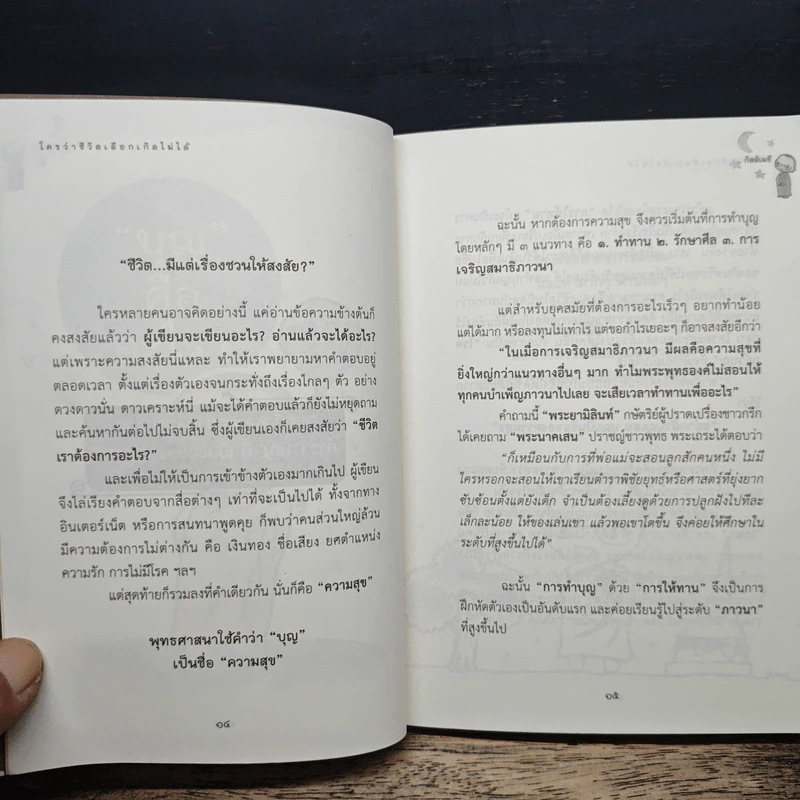 ใครว่าชีวิตเลือกเกิดไม่ได้
“ชีวิต...มีแต่เรื่องชวนให้สงสัย?”
ใครหลายคนอาจคิดอย่างนี้ แค่อ่านข้อความข้างต้นก็
คงสงสัยแล้วว่า ผู้เขียนจะเขียนอะไร? อ่านแล้วจะได้อะไร?
แต่เพราะความสงสัยนี่แหละ ทำให้เราพยายามหาคำตอบอยู่
ตลอดเวลา ตั้งแต่เรื่องตัวเองจนกระทั่งถึงเรื่องไกลๆ ตัว อย่าง
ดวงดาวนั่น ดาวเคราะห์นี่ แม้จะได้คำตอบแล้วก็ยังไม่หยุดถาม
และค้นหากันต่อไปไม่จบสิ้น ซึ่งผู้เขียนเองก็เคยสงสัยว่า “ชีวิต
เราต้องการอะไร?”
และเพื่อไม่ให้เป็นการเข้าข้างตัวเองมากเกินไป ผู้เขียน
จึงไล่เรียงคำตอบจากสื่อต่างๆ เท่าที่จะเป็นไปได้ ทั้งจากทาง
อินเตอร์เน็ต หรือการสนทนาพูดคุย ก็พบว่าคนส่วนใหญ่ล้วน
มีความต้องการไม่ต่างกัน คือ เงินทอง ชื่อเสียง ยศตำแหน่ง
ความรัก การไม่มีโรค ฯลฯ
แต่สุดท้ายก็รวมลงที่คำเดียวกัน นั่นก็คือ “ความสุข”
พุทธศาสนาใช้คำว่า “บุญ”
เป็นชื่อ “ความสุข”
๑๔
กิตติเมธี
ฉะนั้น หากต้องการความสุข จึงควรเริ่มต้นที่การทำบุญ
โดยหลักๆ มี ๓ แนวทาง คือ ๑. ทำทาน ๒. รักษาศีล ๓. การ
เจริญสมาธิภาวนา
แต่สำหรับยุคสมัยที่ต้องการอะไรเร็วๆ อยากทำน้อย
แต่ได้มาก หรือลงทุนไม่เท่าไร แต่ขอกำไรเยอะๆ ก็อาจสงสัยอีกว่า
“ในเมื่อการเจริญสมาธิภาวนา มีผลคือความสุขที่
ยิ่งใหญ่กว่าแนวทางอื่นๆ มาก ทำไมพระพุทธองค์ไม่สอนให้
ทุกคนบำเพ็ญภาวนาไปเลย จะเสียเวลาทำทานเพื่ออะไร”
คำถามนี้ “พระยามิลินท์” กษัตริย์ผู้ปราดเปรื่องชาวกรีก
ได้เคยถาม “พระนาคเสน” ปราชญ์ชาวพุทธ พระเถระได้ตอบว่า
“ก็เหมือนกับการที่พ่อแม่จะสอนลูกสักคนหนึ่ง ไม่มี
ใครหรอกจะสอนให้เขาเรียนตำราพิชัยยุทธ์หรือศาสตร์ที่ยุ่งยาก
ซับซ้อนตั้งแต่ยังเด็ก จำเป็นต้องเลี้ยงดูด้วยการปลูกฝังไปทีละ
เล็กละน้อย ให้ของเล่นเขา แล้วพอเขาโตขึ้น จึงค่อยให้ศึกษาใน
ระดับที่สูงขึ้นไปได้”
ฉะนั้น “การทำบุญ” ด้วย “การให้ทาน” จึงเป็นการ
ฝึกหัดตัวเองเป็นอันดับแรก และค่อยเรียนรู้ไปสู่ระดับ “ภาวนา”
ที่สูงขึ้นไป
๑๕